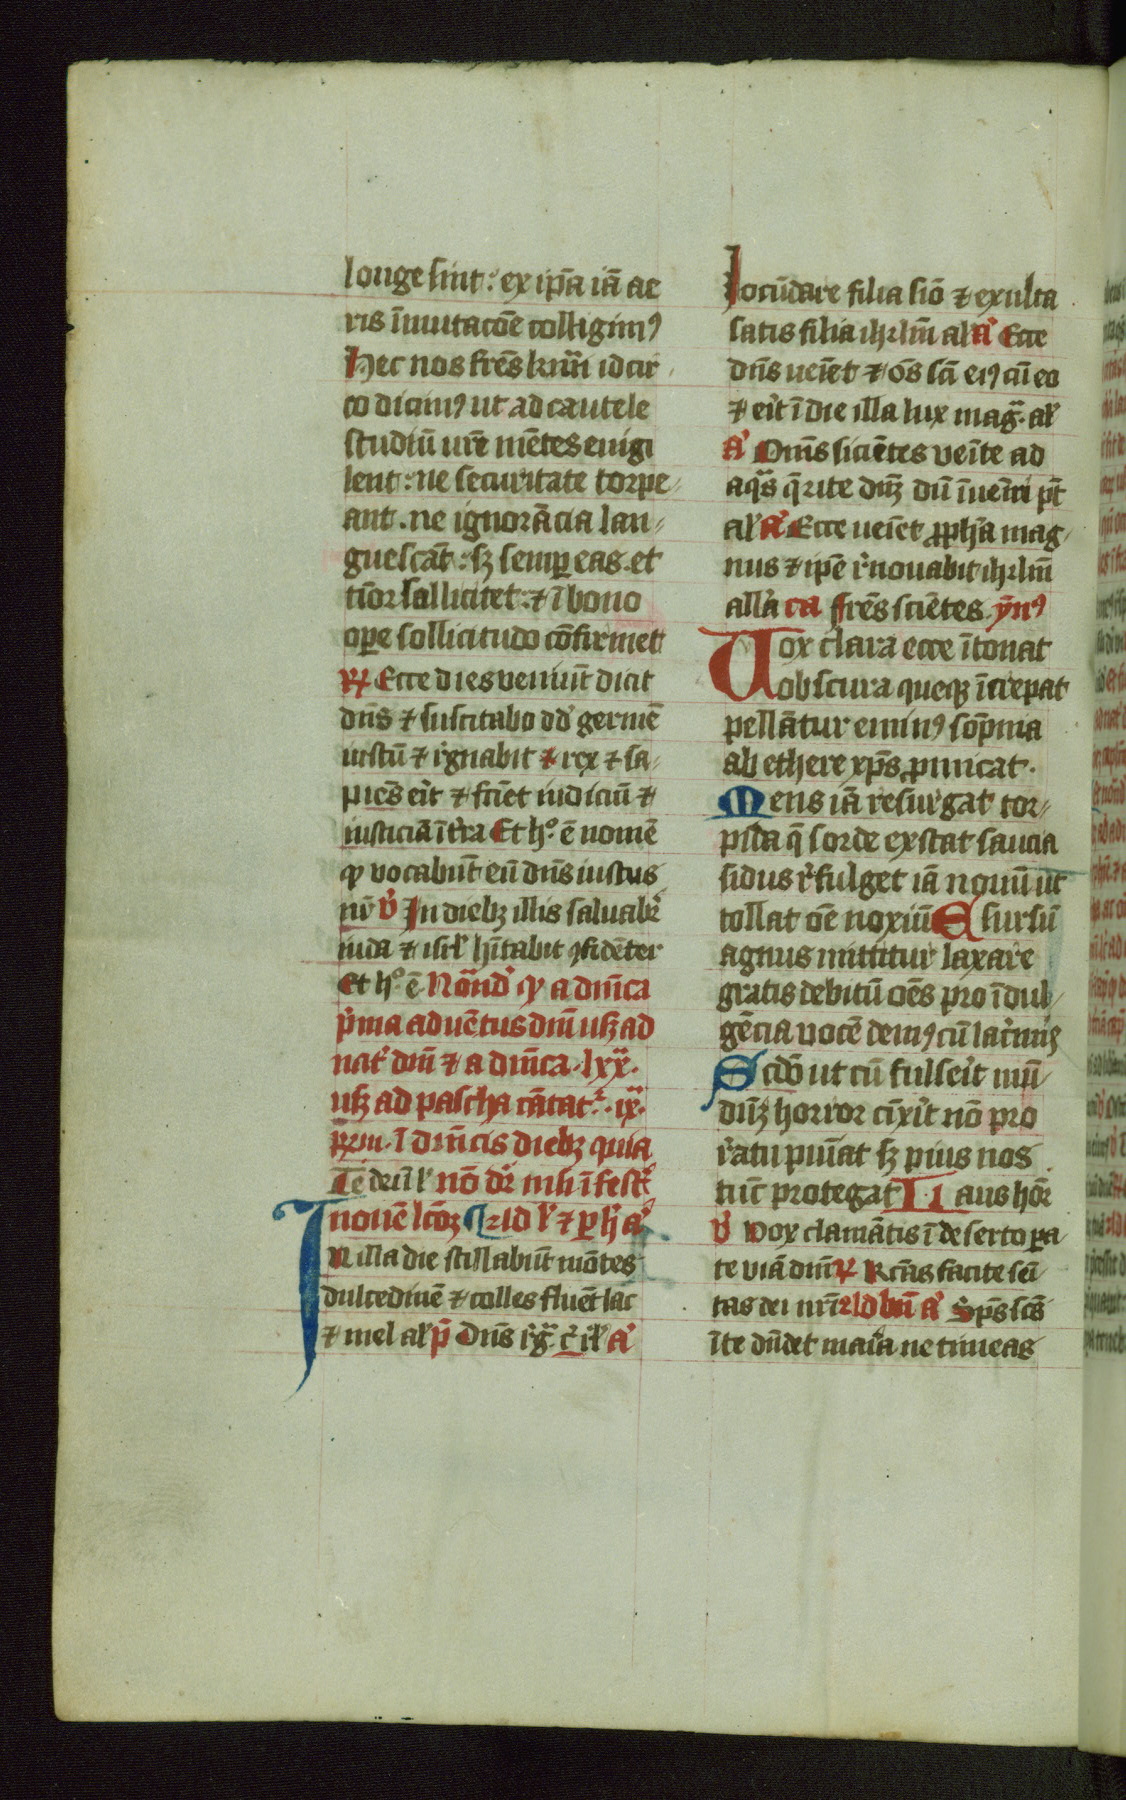 longe sint: ex ip̄a iā ae
ris īmutacōe colligim9
Hec nos frēs kmi idcir
co dicim9 ut ad cautele
studiū ur̄e mētes euigi
lent: ne securitate torpe
ant. ne ignorācia lan
guescāt: sꝫ semp̲ eas. et
timor sollicitet: ⁊ ī bono
op̲e sollicitudo cōfirmet
R Ecce dies veniūt dicit
dn̄s ⁊ suscitabo dd̾ germē
iustū ⁊ r̾gnabit ⁊ rex ⁊ sa
piēs er̾it ⁊ fciet iudiciū ⁊
iusticiā ī t̾ra Et h° ē nomē
qͦ vocabūt eū dn̄s iustus
nr̄ V̾ In diebꝫ illis saluabr̾
iuda ⁊ isrl̾ hītabit ꝯfidēter
Et h° ē Nō d̾ qͦ a dn̄ica
p̾ma aduētus dn̄i usqꝫ ad
nat̾ dn̄i ⁊ a dn̄ica lxx
usqꝫ ad pascha cātat̾ ix
ī dn̄icis diebꝫ quia
Te deū l̾ nō dr̄ nisi ī fest̾
nouē lcōꝫ ld̾ ⁊ p̲ h̾ a̾
In illa die stillabūt mōtes
dulcedinē ⁊ colles fluēt lac
⁊ mel al̾ p̄ Dn̄s rg̾ a̾
Iocūdare filia siō ⁊ exulta
satis filia ihrlm̄ al̾ a̾ Ecce
dn̄s ueīet ⁊ ōs sc̄i ei9 cū eo
⁊ er̾it ī die illa lux mag̾ al̾
a̾ Om̄s siciētes veīte ad
aq̾s q̄rite dn̄ꝫ dū īueīri pt̄
al̾ a̾ Ecce ueīet ꝓph̾a mag
nus ⁊ ip̄e r̾nouabit ihrlm̄
all̾a ca frēs sciētes. ȳn9
Vox clara ecce ītonat
obscura queqꝫ īcrepat
pellātur emin9 sōpnia
ab ethere xp̄s ꝓmicat.
Mens iā resurgat tor
pida q̄ sorde exstat saucia
sidus r̾fulget iā nouū ut
tollat oē noxiū E sursū
agnus mittitur laxare
gratis debitū oēs pro īdul
gēcia vocē dem9 cū lac̾mis
Scdō ut cū fulser̾it mū
dūꝫ horror cīxer̾it nō pro
r̾atu pūiat sꝫ pius nos
tūc protegat Laus hōr
V̾ Vox clamātis ī deserto p̲a
te viā dn̄i R Rc̄as facite sēi
tas dei nr̄i ld̾ bn̄ a̾ Sp̄s sc̄s
ī te dn̄det maīa ne timeas